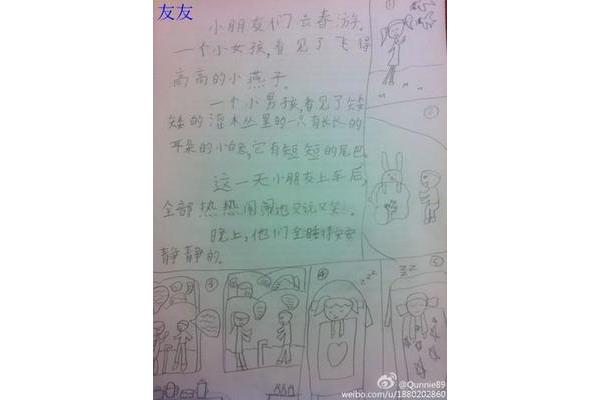 友友
小朋友们去春游。
一个小女孩,看见了飞得
高高的小燕子。
一个小男孩,看见了矮
矮的灌木丛里的一只有长长的
耳朵的小白兔,它有短短的尾巴。
这一天小朋友上车后,
全部热热闹闹地又玩又笑。
晚上,他们全睡得安安
静静的。
①
②
③
④
zzz
⑤
zz
@Qunnie89
weibo.com/u/1880202860